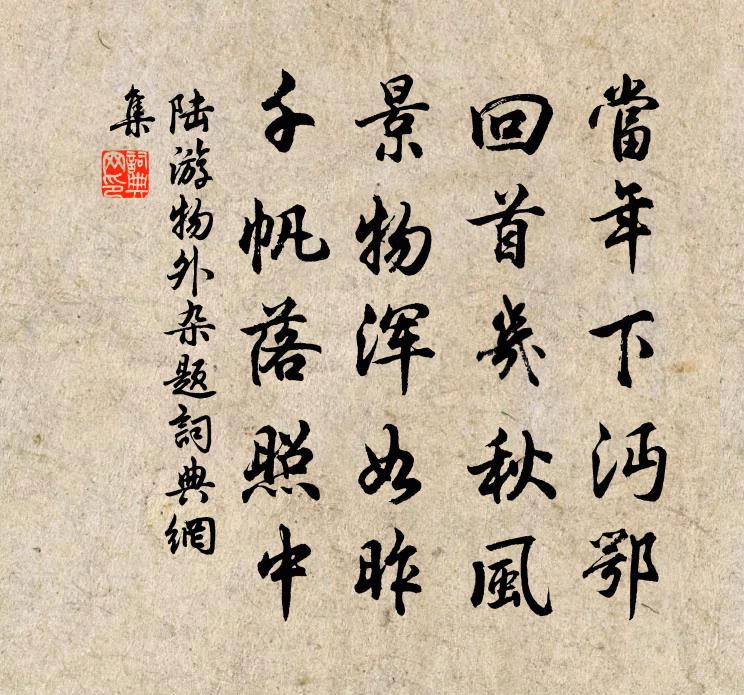 當年下沔鄂
回首幾秋風
景物浑如昨
千帆落照中
陆游物外杂题詞典網
集
詞典网印